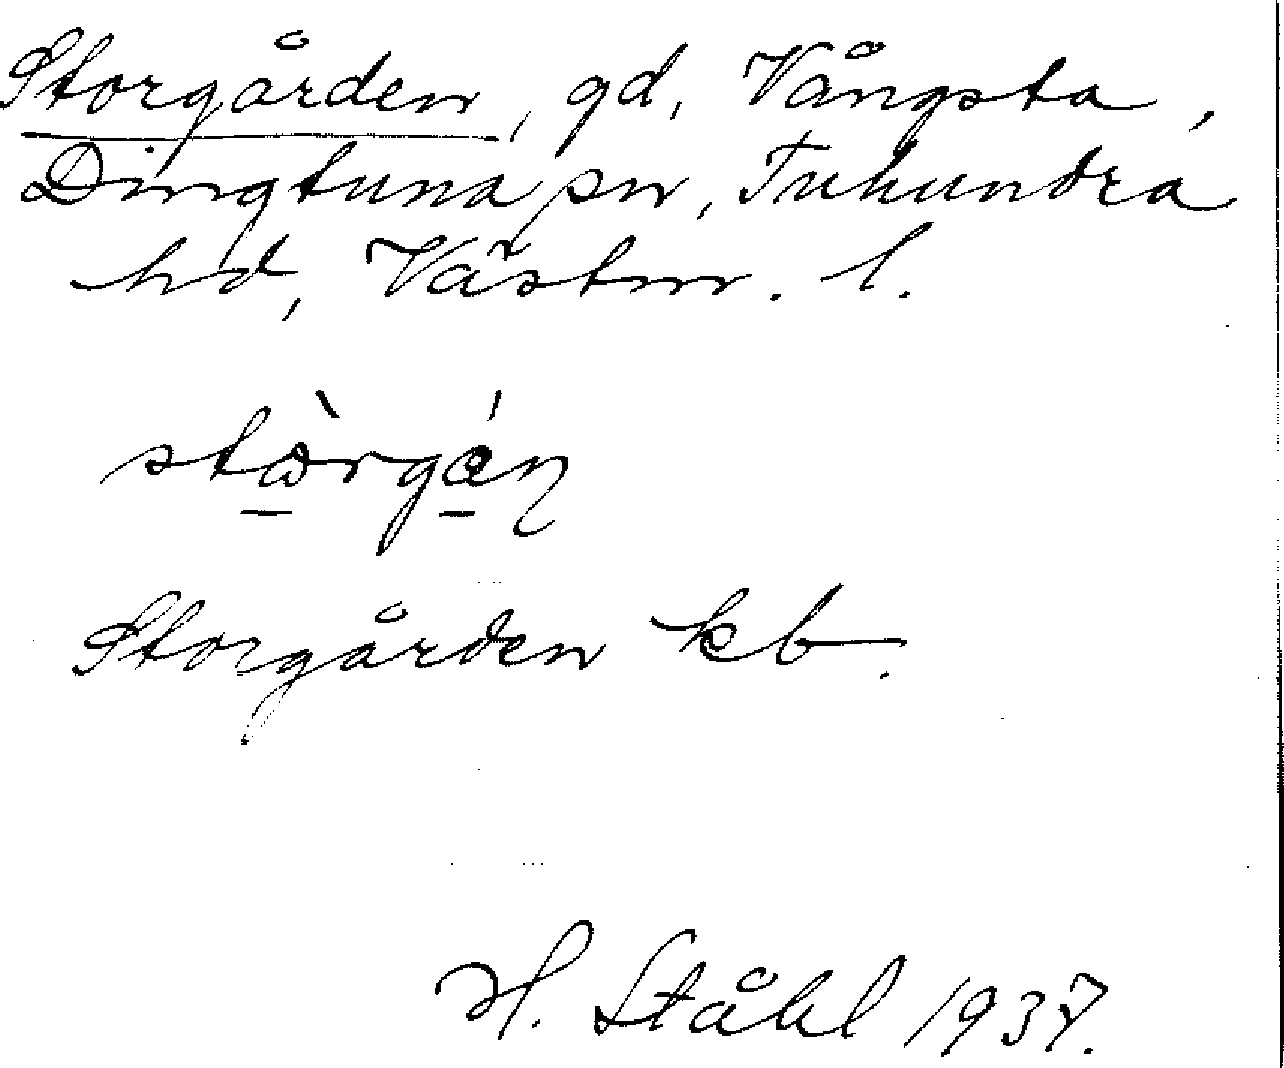 Storgården, gd, Vångsta,
Dingtuna sn, Tuhundra
hd, Västm. l.
Storgården kb.
H. Ståhl 1937.